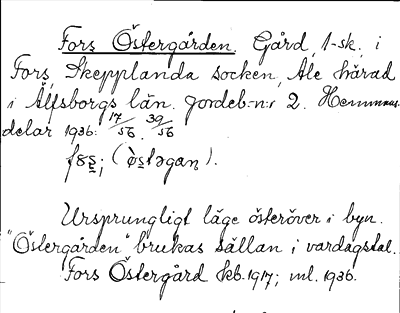 Fors Östergården. Gård, 1-sk, i
Fors, Skepplanda socken, Ale härad
i Älfsborgs län. Jordeb:n:r 2. Hemmans-
delar 1936: 17/56. 39/56
(ös̱təgaṇ).
Ursprungligt läge österöver i byn.
"Östergården" brukas sällan i vardagstal.
Fors Östergård kb. 1917; ml. 1936.